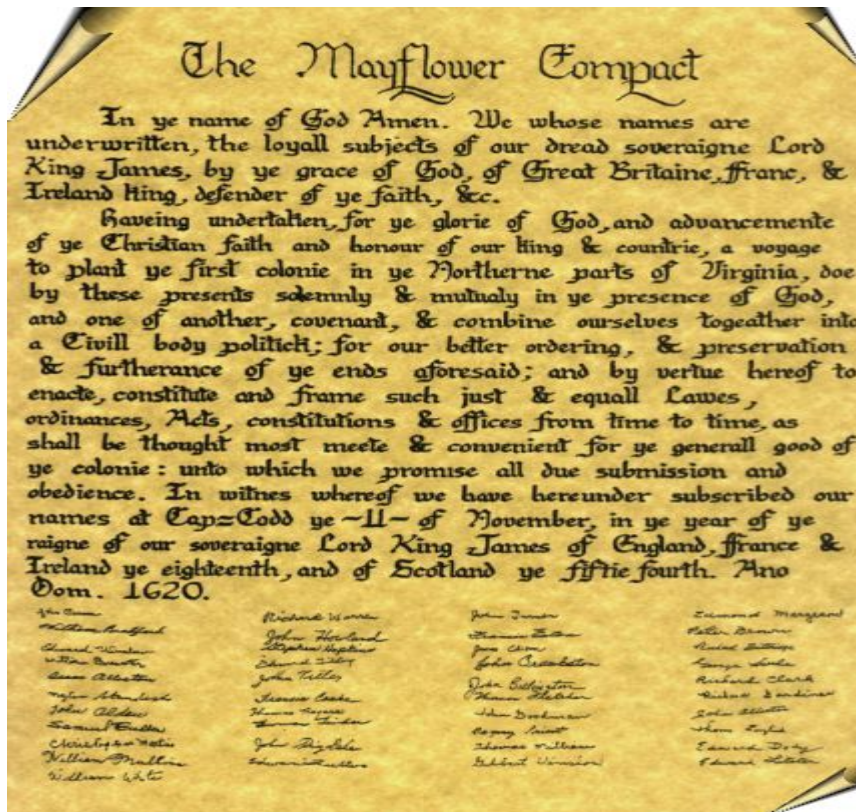 The Mayflower Compact
In ye name of God Amen. We whose names are
underwritten, the loyall subjects of our dread soveraigne Lord
King James, by ye grace of God, of Great Britaine, ffranc, &
Ireland king, defender of ye faith, &c.
Haveing undertaken, for ye glorie of God, and advancemente
of ye Christian faith and honour of our king & countrie, a voyage
to plant ye first colonie in ye Northerne parts of Virginia, doe
by these presents solemnly & mutualy in ye presence of God,
and one of another, covenant, & combine ourselves togeather into
a Civill body politick; for our better ordering, & preservation
& furtherance of ye ends aforesaid; and by vertue hereof to
enacte, constitute and frame such just & equall Lawes,
ordinances, Acts, constitutions & offices from time to time, as
shall be thought most meete & convenient for ye generall good of
ye colonie: unto which we promise all due submission and
obedience. In witnes whereof we have hereunder subscribed our
names at Cap=Codd ye ~11~ of November, in ye year of ye
raigne of our soveraigne Lord King James of England, ffrance &
Ireland ye eighteenth, and of Scotland ye fiftie fourth. Ano
Dom. 1620.
John
William Bradford
Edward
Isaac Allerton
John Alden
Samuel Fuller
William Mullins
William White
Richard Warren
John Howland
Stephen Hopkins
Edward Tilley
John Tilley
Francis Cooke
Thomas Rogers
Thomas Tinker
John
Edward
John Turner
Francis Eaton
John
John Billington
John Goodman
Thomas Williams
Gilbert Winslow
Edmond Margeson
Peter Brown
George
Richard Clark
Richard Gardiner
John Allerton
Thomas English
Edward Doty
Edward